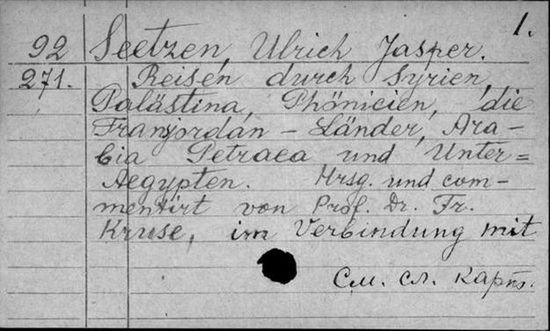 1.
92 Seetzen, Ulrich Jasper.
271. Reisen durch Syrien,
Palästina, Phönicien, die
Transjordan-Länder, Ara-
bia Petraea und Unter=
Aegypten. Hrsg. und com-
mentirt von Prof. Dr. Fr.
Kruse, im Verbindung mit
См. сл. карт.